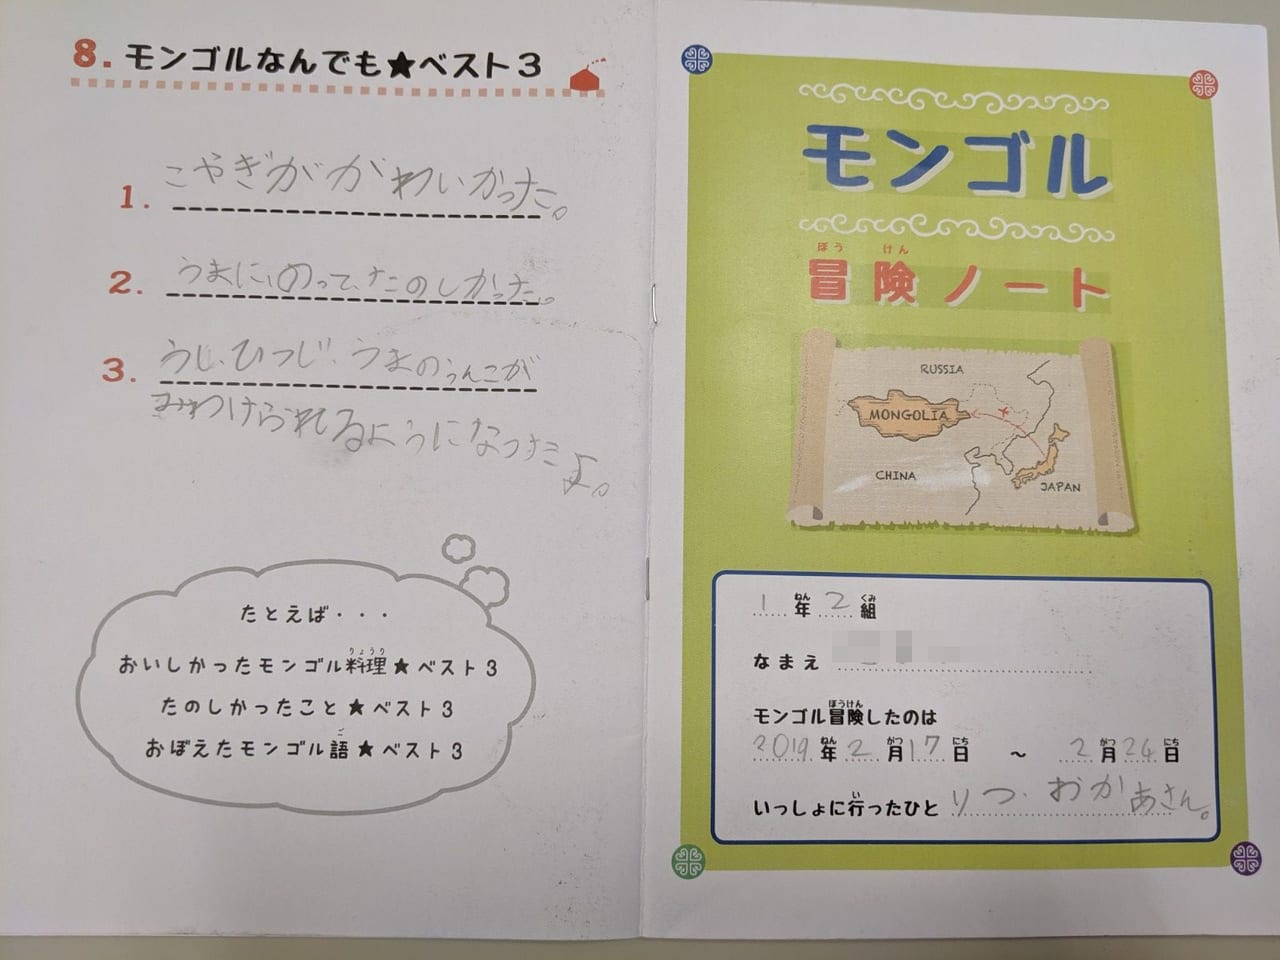 8. モンゴルなんでも★ベスト3
1. こやぎがかわいかった。
2. うまにのって、たのしかった。
3. うし、ひつじ、うまのうんこが
みわけられるようになったよ。
たとえば・・・
おいしかったモンゴル料理★ベスト3
りょうり
たのしかったこと★ベスト3
おぼえたモンゴル語★ベスト3
ご
モンゴル
ぼうけん
冒険ノート
RUSSIA
MONGOLIA
CHINA
JAPAN
1年2組
ねん くみ
なまえ
モンゴル冒険したのは
ぼうけん
2019年2月17日 ~ 2月24日
ねん がつ にち がつ にち
いっしょに行ったひと りつ、おかあさん。
い